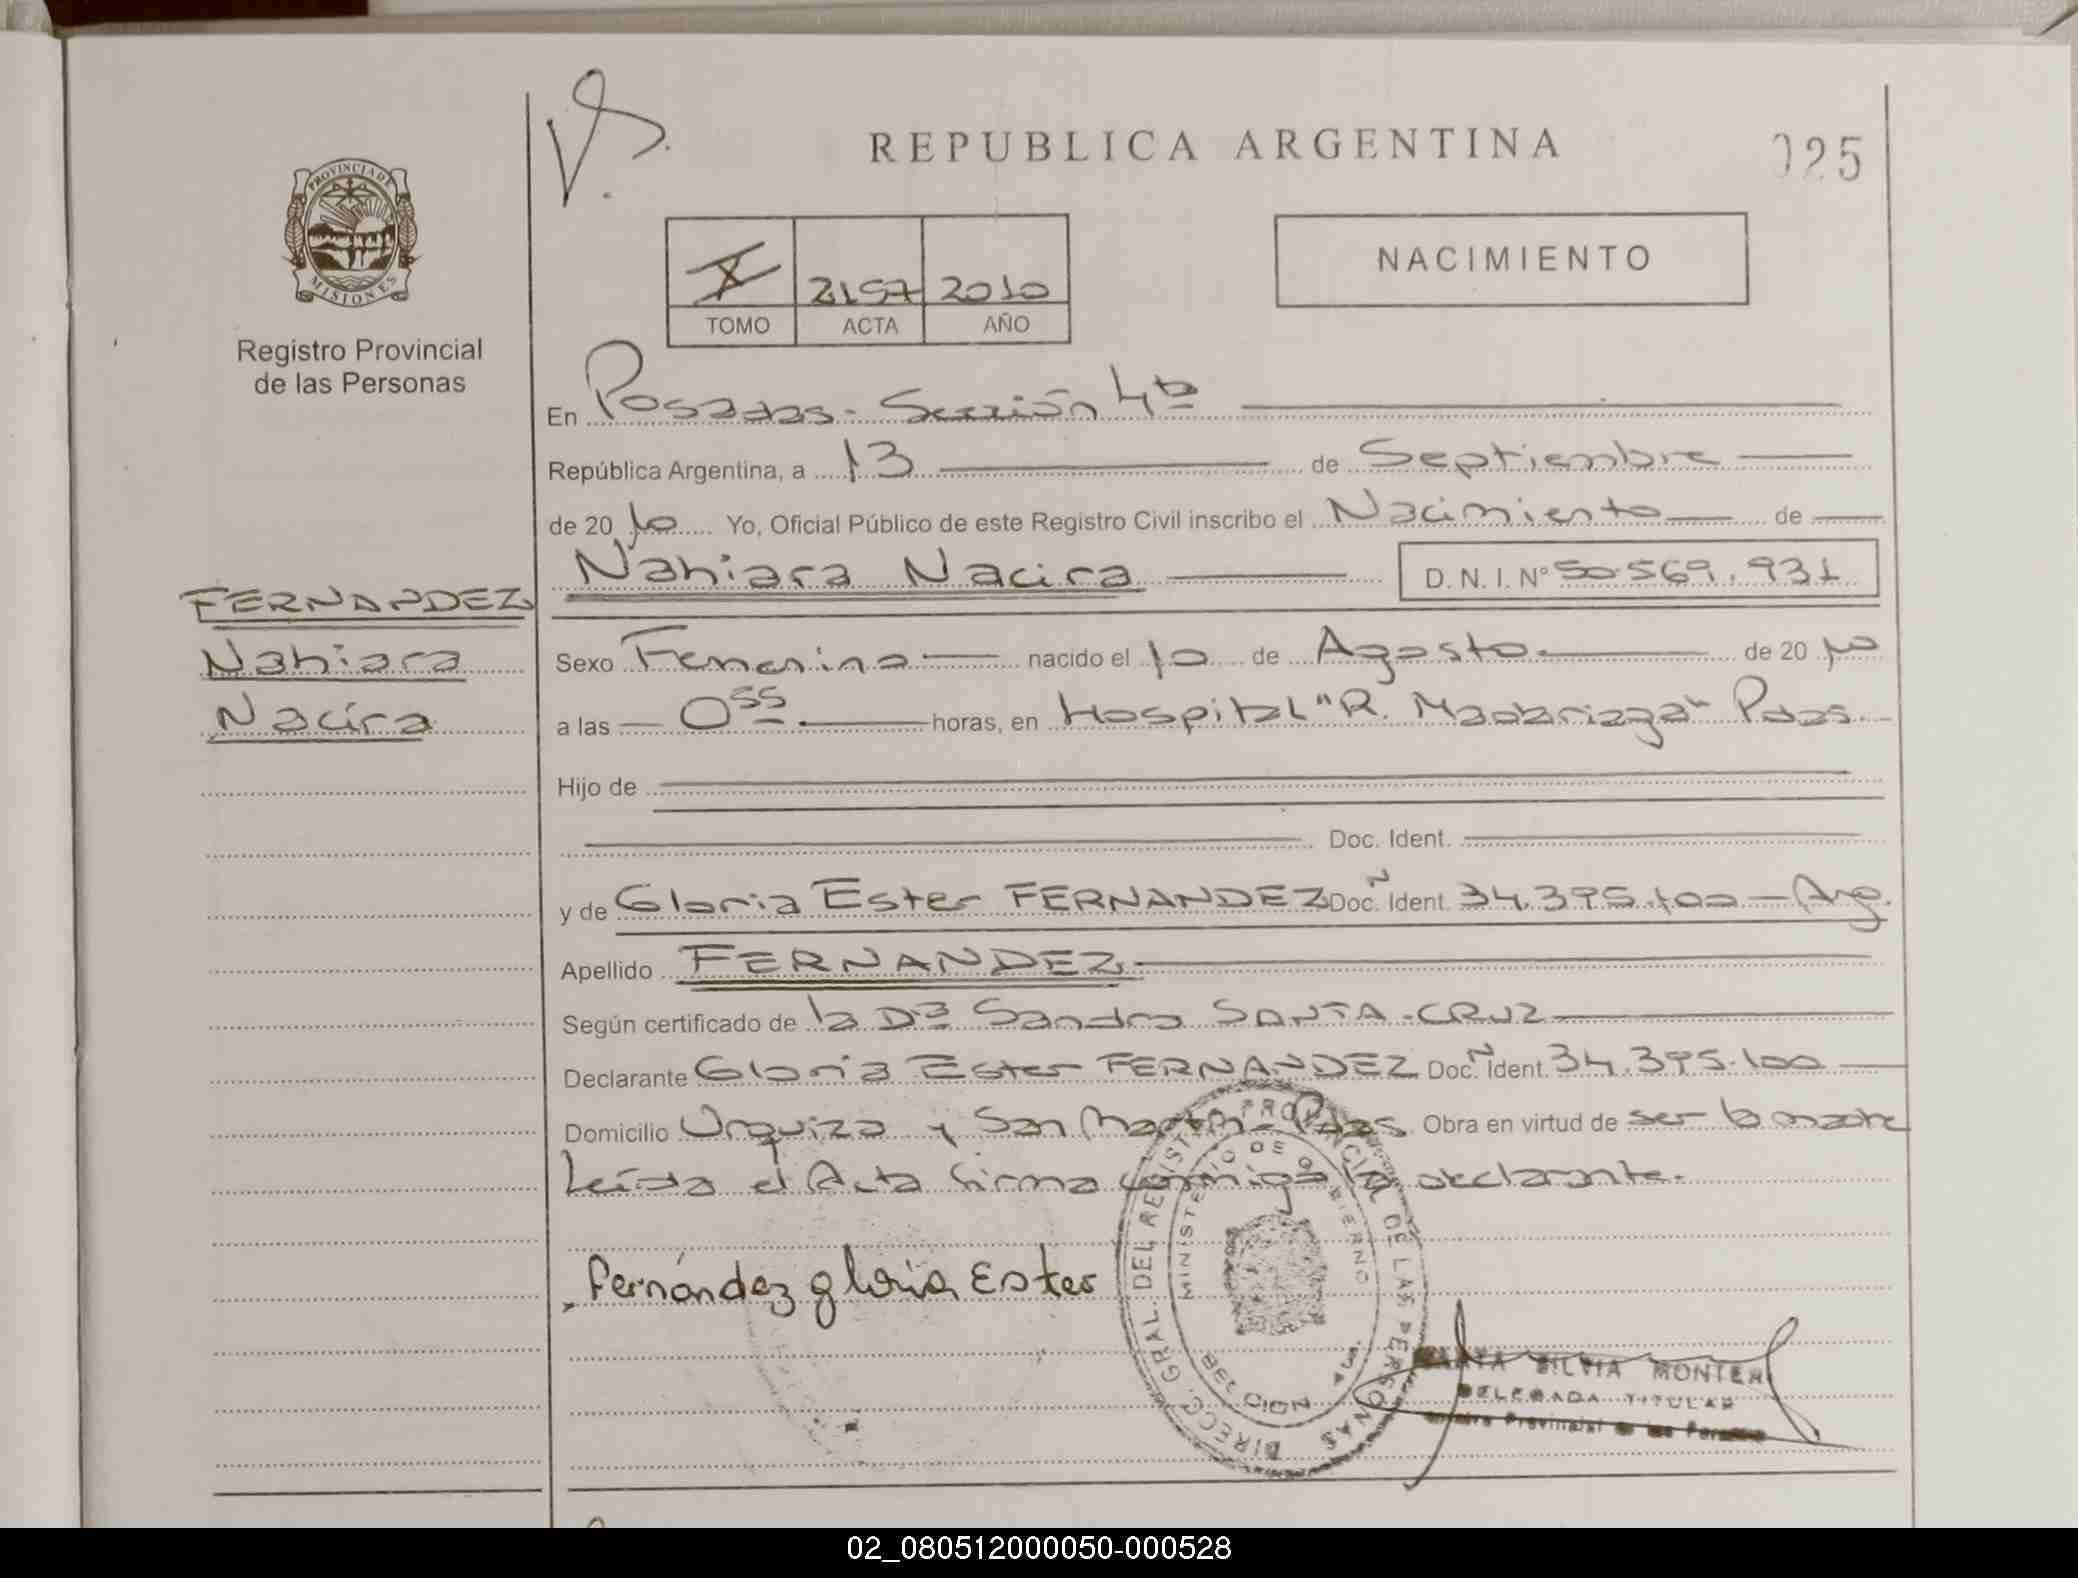 REPUBLICA ARGENTINA
025
PROVINCIA DE
MISIONES
Registro Provincial
de las Personas
X 2157 2010
TOMO ACTA AÑO
NACIMIENTO
En Posadas - Sección 4ta
República Argentina, a 13 de Septiembre
de 20 10 Yo, Oficial Público de este Registro Civil inscribo el Nacimiento de
Nahiara Nacira D.N.I. Nº 50.569.931
FERNANDEZ
Nahiara
Nacira
Sexo Femenino nacido el 10 de Agosto de 20 10
a las 0 55 horas, en Hospital "R. Madariaga" Pdas.
Hijo de
Doc. Ident.
y de Gloria Ester FERNANDEZ Doc. N Ident. 34.395.100 - Arg.
Apellido FERNANDEZ
Según certificado de la Dra Sandra SANTA-CRUZ
Declarante Gloria Ester FERNANDEZ Doc. N Ident. 34.395.100
Domicilio Urquiza y San Martín - Pdas. Obra en virtud de ser la madre
Leída el Acta firma conmigo la declarante.
Fernández gloria Ester
DIRECC. GRAL. DEL REGIST PROVINCIAL DE LAS PERSONAS
MINISTERIO DE GOBIERNO
SILVIA MONTER
DELEGADA TITULAR
Provincial de las
02_080512000050-000528